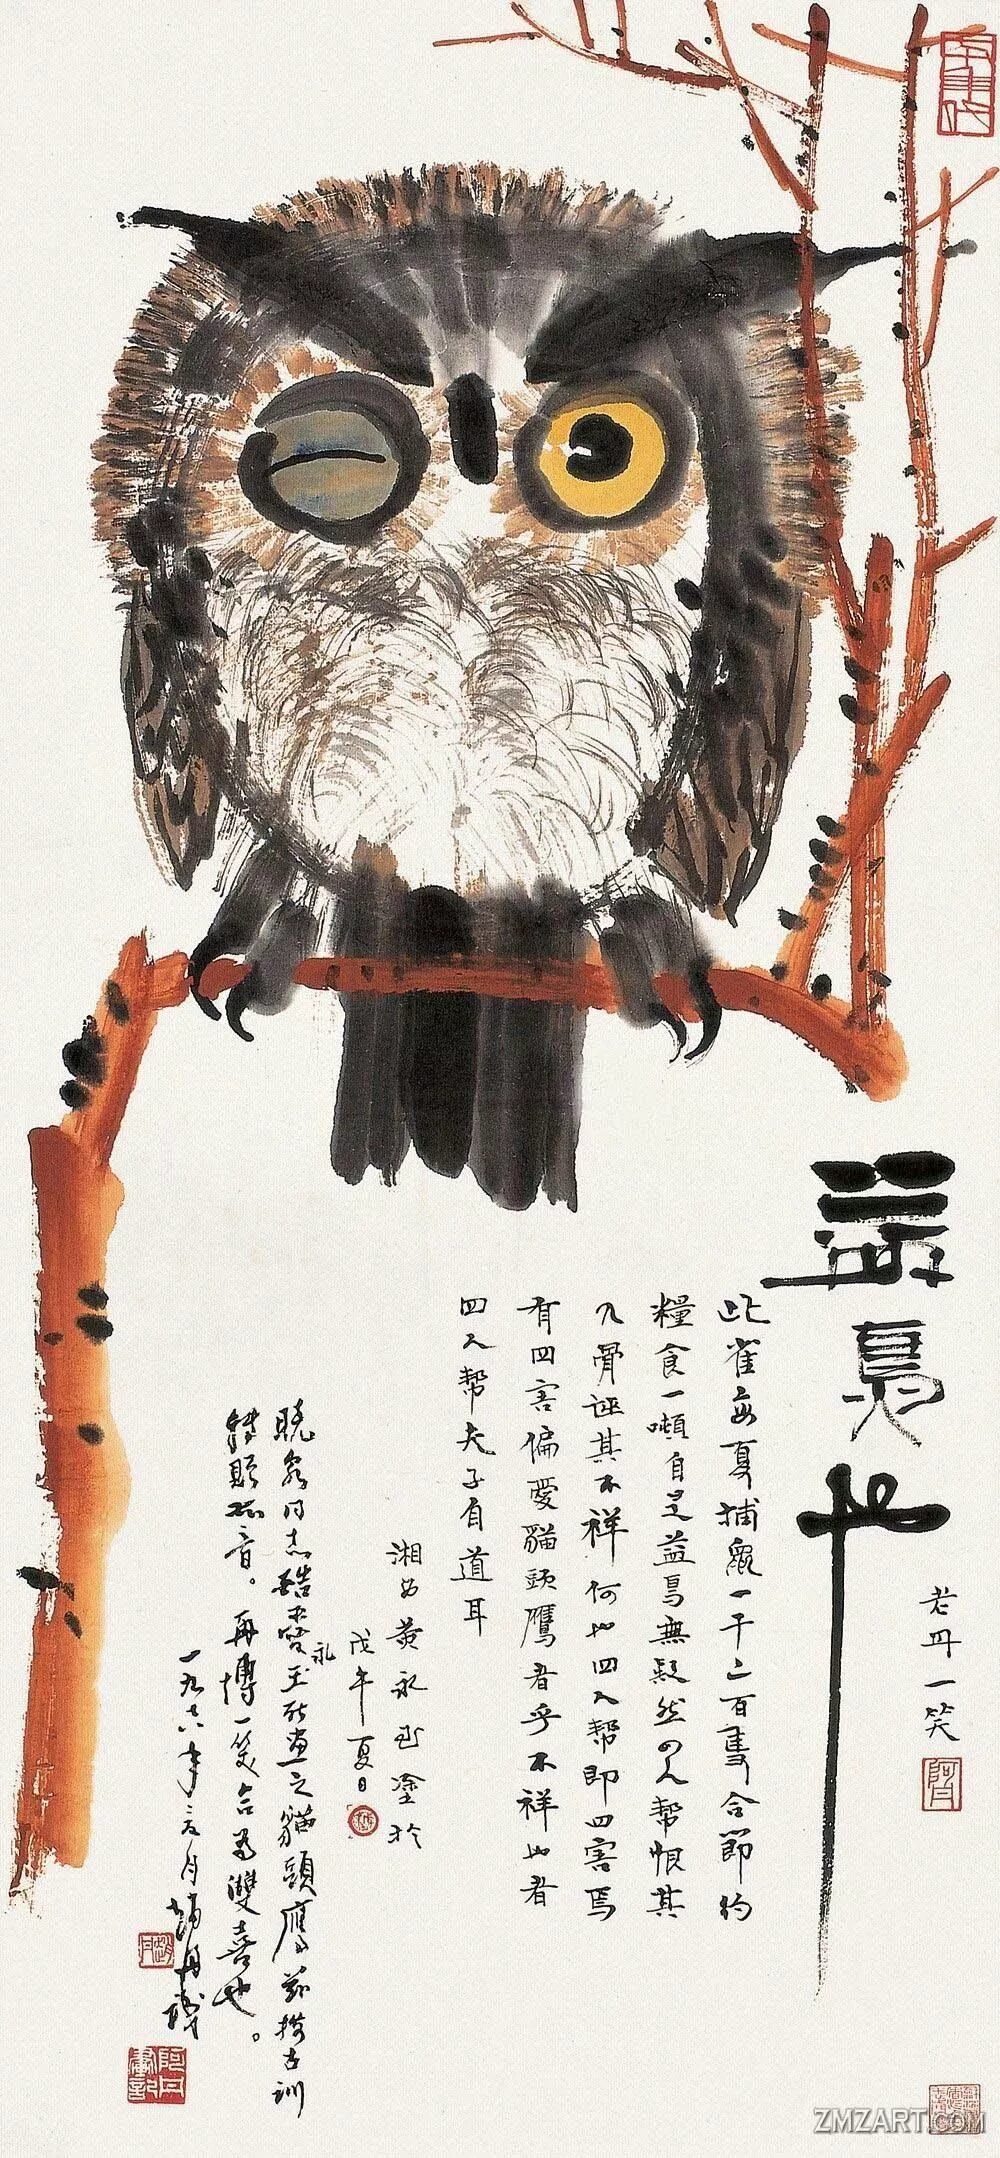 益鳥也
老丹一笑
此雀每夏捕鼠一千二百隻合節約
糧食一噸自是益鳥無疑然四人帮恨其
入骨誣其不祥何也四人帮即四害焉
有四害偏愛貓頭鷹者乎不祥也者
四人帮夫子自道耳
湘西黄永玉塗於
戊午夏日
同志酷愛永玉所畫之貓頭鷹茲古訓
特音。再博一笑合為雙喜也。
一九年月趙丹識
ZMZART.COM